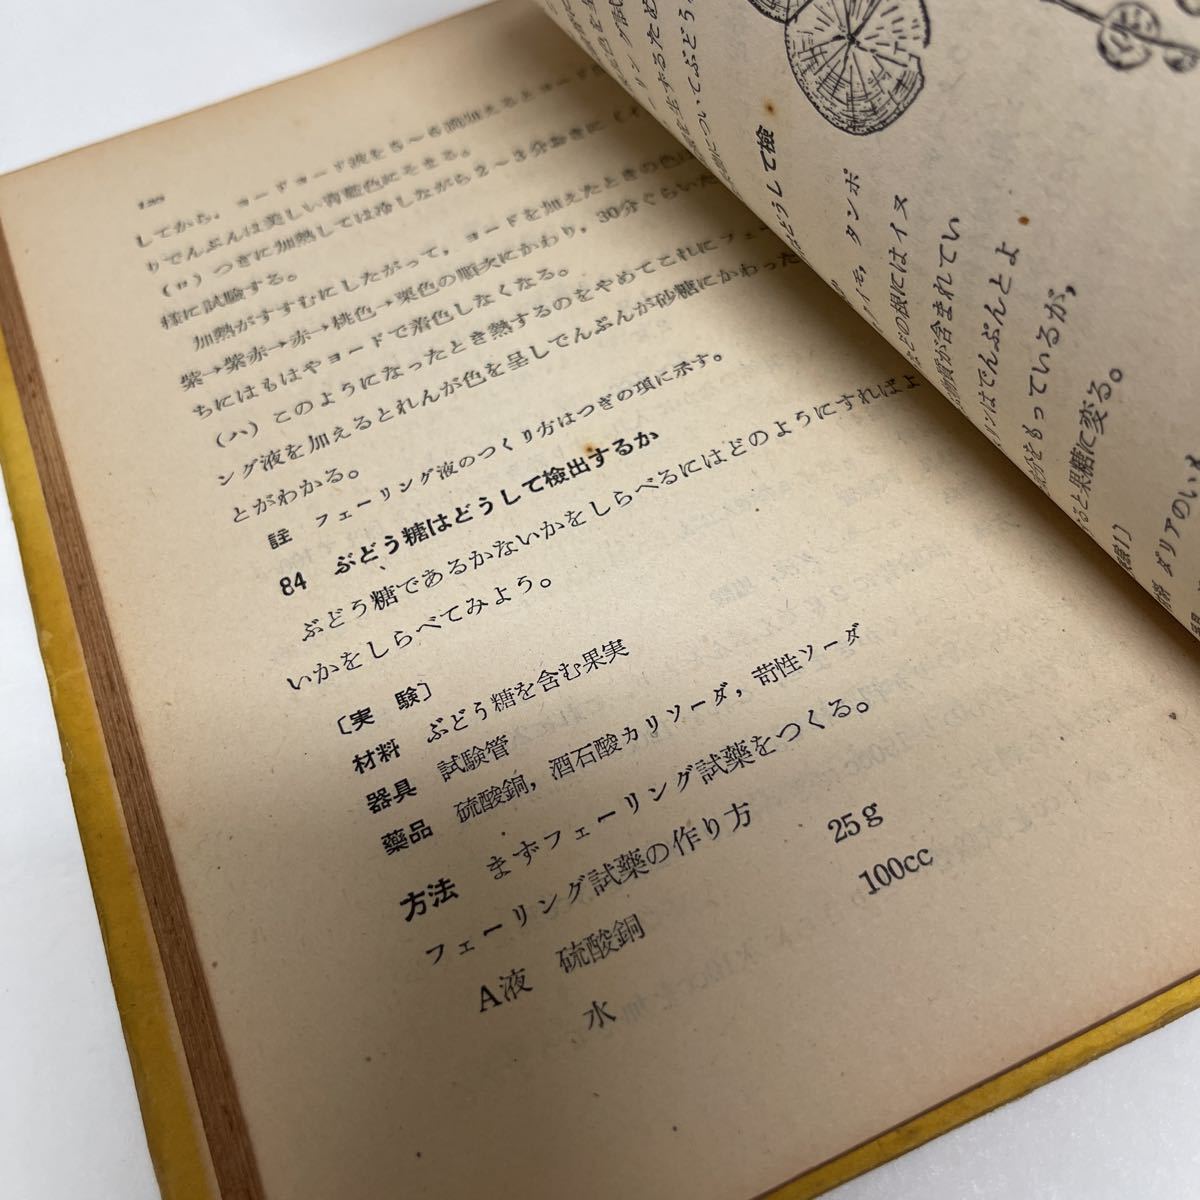 138
してから，ヨードヨード液を5～6滴加えるとヨード
りでんぷんは美しい青藍色にそまる。
(ロ) つぎに加熱しては冷しながら2～3分おきに(イ
様に試験する。
加熱がすすむにしたがって，ヨードを加えたときの色は
紫→紫赤→赤→桃色→栗色の順次にかわり，30分ぐらいた
ちにはもはやヨードで着色しなくなる。
(ハ) このようになったとき熱するのをやめてこれにフェー
ング液を加えるとれんが色を呈しでんぷんが砂糖にかわった
とがわかる。
註 フェーリング液のつくり方はつぎの項に示す。
84 ぶどう糖はどうして検出するか
ぶどう糖であるかないかをしらべるにはどのようにすればよ
いかをしらべてみよう。
〔実 験〕
材料 ぶどう糖を含む果実
器具 試験管
薬品 硫酸銅，酒石酸カリソーダ，苛性ソーダ
方法 まずフェーリング試薬をつくる。
フェーリング試薬の作り方
A液 硫酸銅 25g
水 100cc
どうして検
イモ，タンポ
などの根にはイヌ
物質が含まれてい
リンはでんぷんとよ
成分をもっているが，
ると果糖に変る。
ダリアのいも